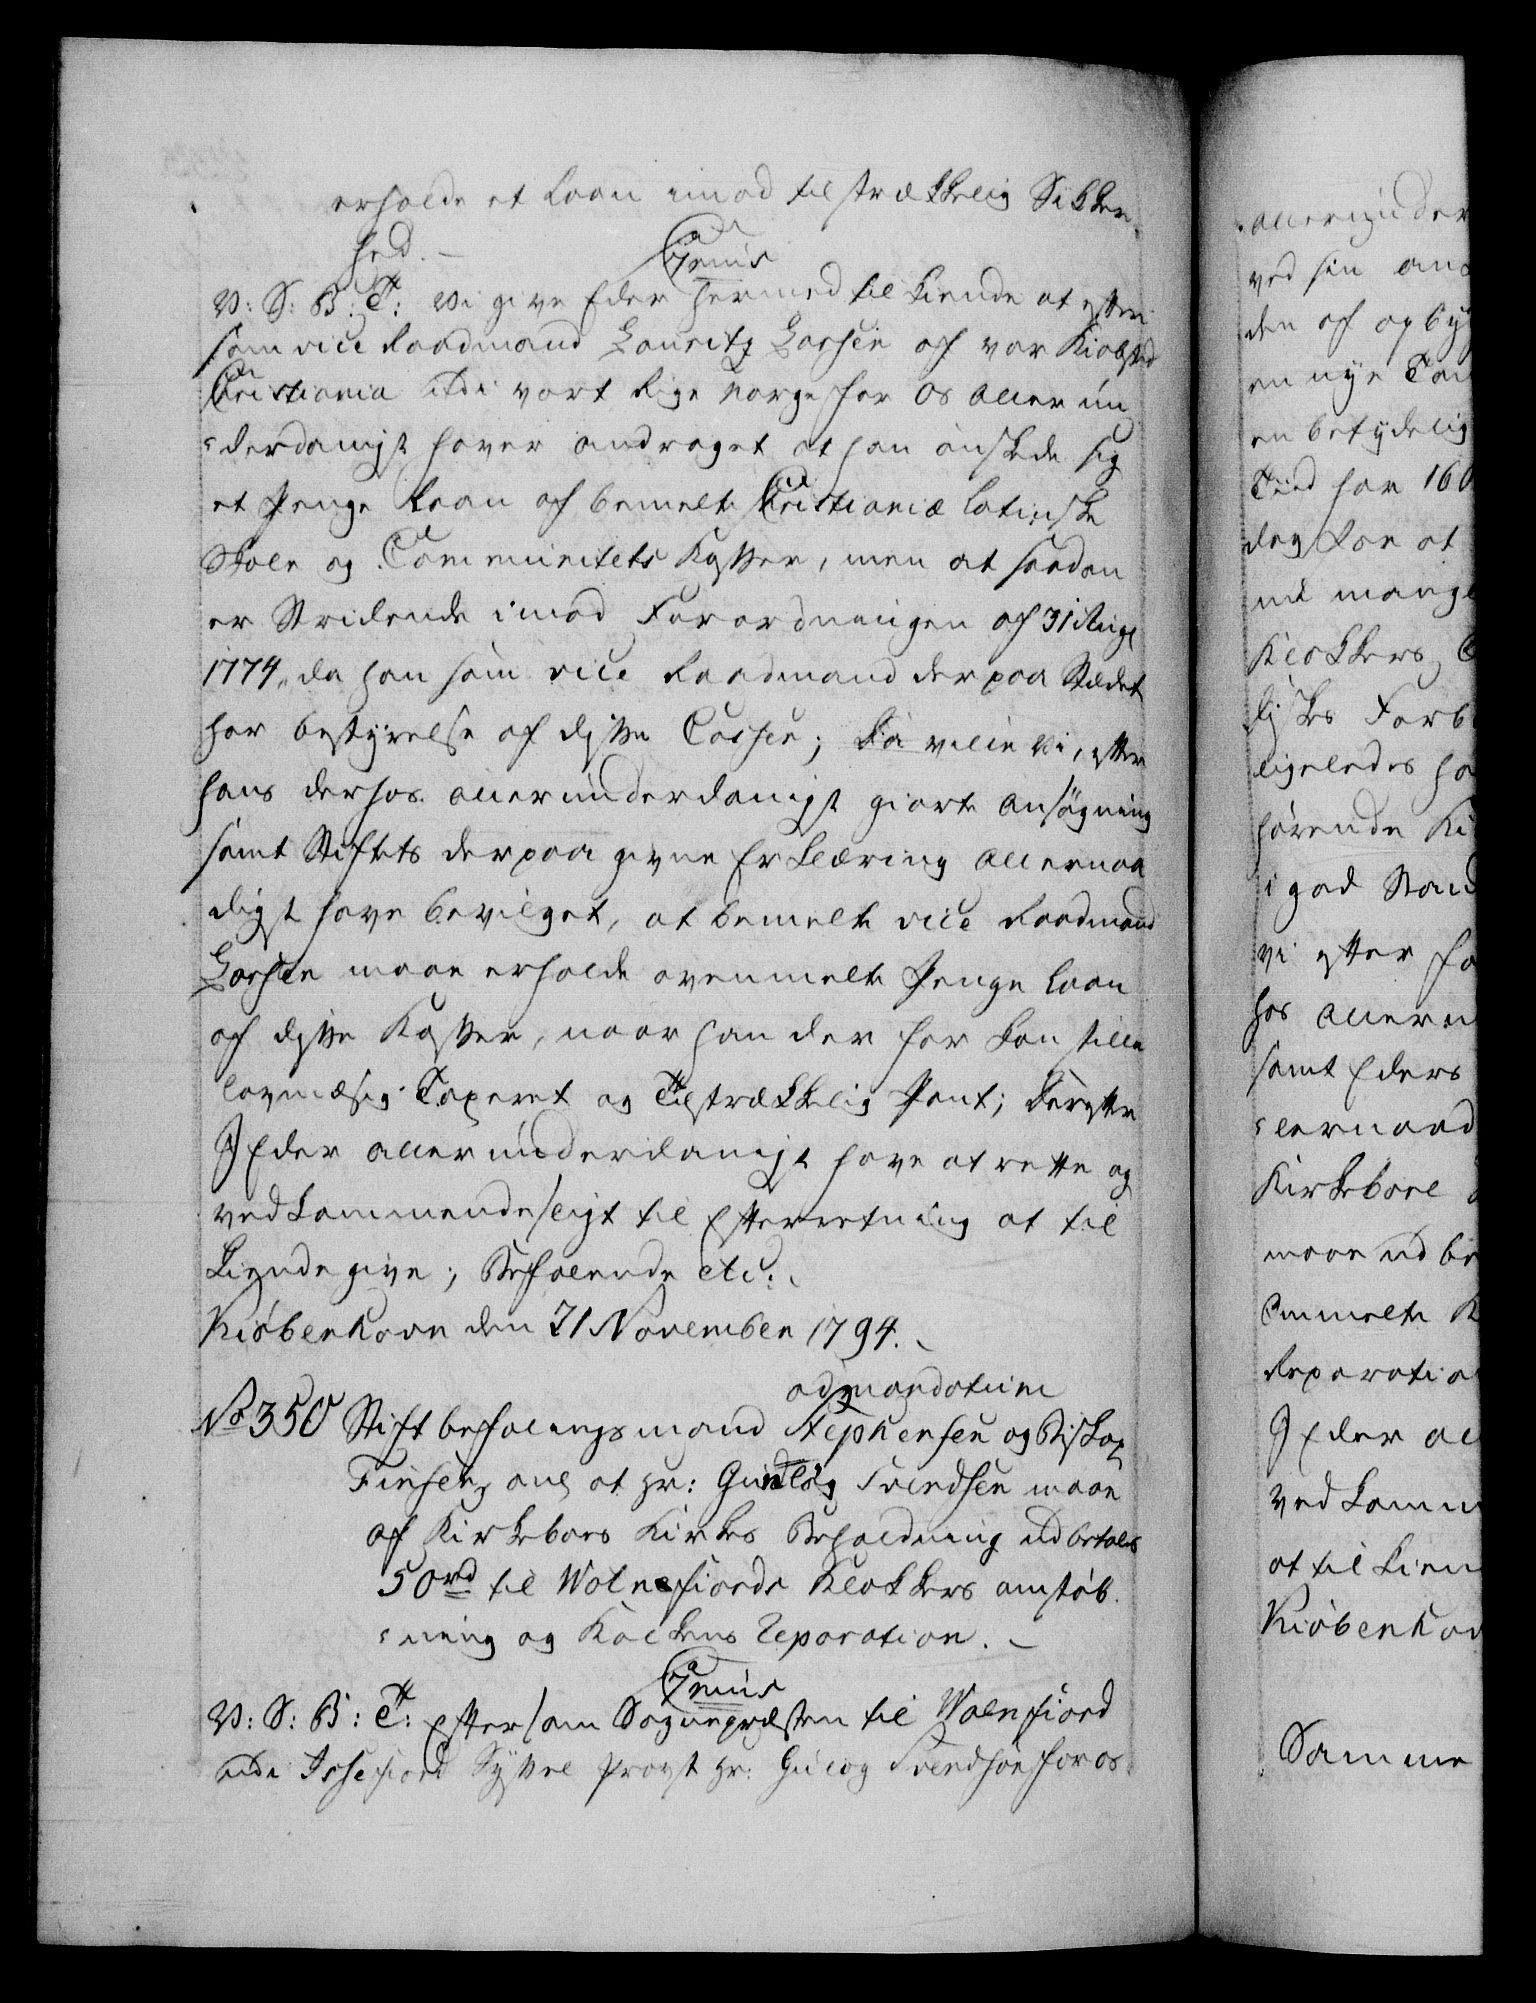 erholde et Laan imod tilstrækkelig Sikker-
hed. —
Genus
V: S: B: T: Vi give Eder hermed til kiende at efter
som vice Raadmand Lauritz Larsen af vor Kiøbsted
Christiania udi vort Rige Norge for Os allerun
derdanigst haver andraget at han ønskede sig
et Penge Laan af bemelte Christianiæ Latinske
Skole og Communitets Kasser, men at saadan
er Stridende imod Forordningen af 31 Aug:
1774, da han som vice Raadmand der paa Stædet
har bestyrelse af disse Casser; Saa ville Vi, efter
hans derhos allerunderdanigst giorte Ansøgning
samt Stiftets derpaa givne Erklæring allernaa
digst have bevilget, at bemelte vice Raadmand
Larsen maae erholde ovenmelte Penge Laan
af disse Kasser, naar han der for kan stille
lovmæsig Taxeret og Tilstrækkelig Pant; Derefter
I Eder allerunderdanigst have at rette og
vedkommende sligt til Efterretning at til
kiende give; Befalende etc:
Kiøbenhavn den 21 November 1794.
ad mandatum
No 350 Stiftbefalingsmand Stephensen og Biskop
Finsen, anl at Hr: Gudlög Svendsen maae
af Kirkeboes Kirkes Beholdning udbetales
50 rd til Watnsfiords Klokkers omstøb-
ning og Kalkens Reparation. —
Genus
V: S: B: T: Eftersom Sognepræsten til Watnsfiord
udi Issefiord Syssel Provst Hr: Gudlög Svendsen for os
allerunder
ved sin an
den af opby
en nye
en betydelig
Tiid har 160
dog kan at
nu mangl
Klokkers
lises Forb
ligeledes ha
hørende Ki
i god Stand
vi efter ha
hos allerun
samt Eders
lernaad
Kirkeboe
maae ud be
bemelte K
Reparatio
I Eder al
vedkomm
at til kien
Kiøbenhav
Samme